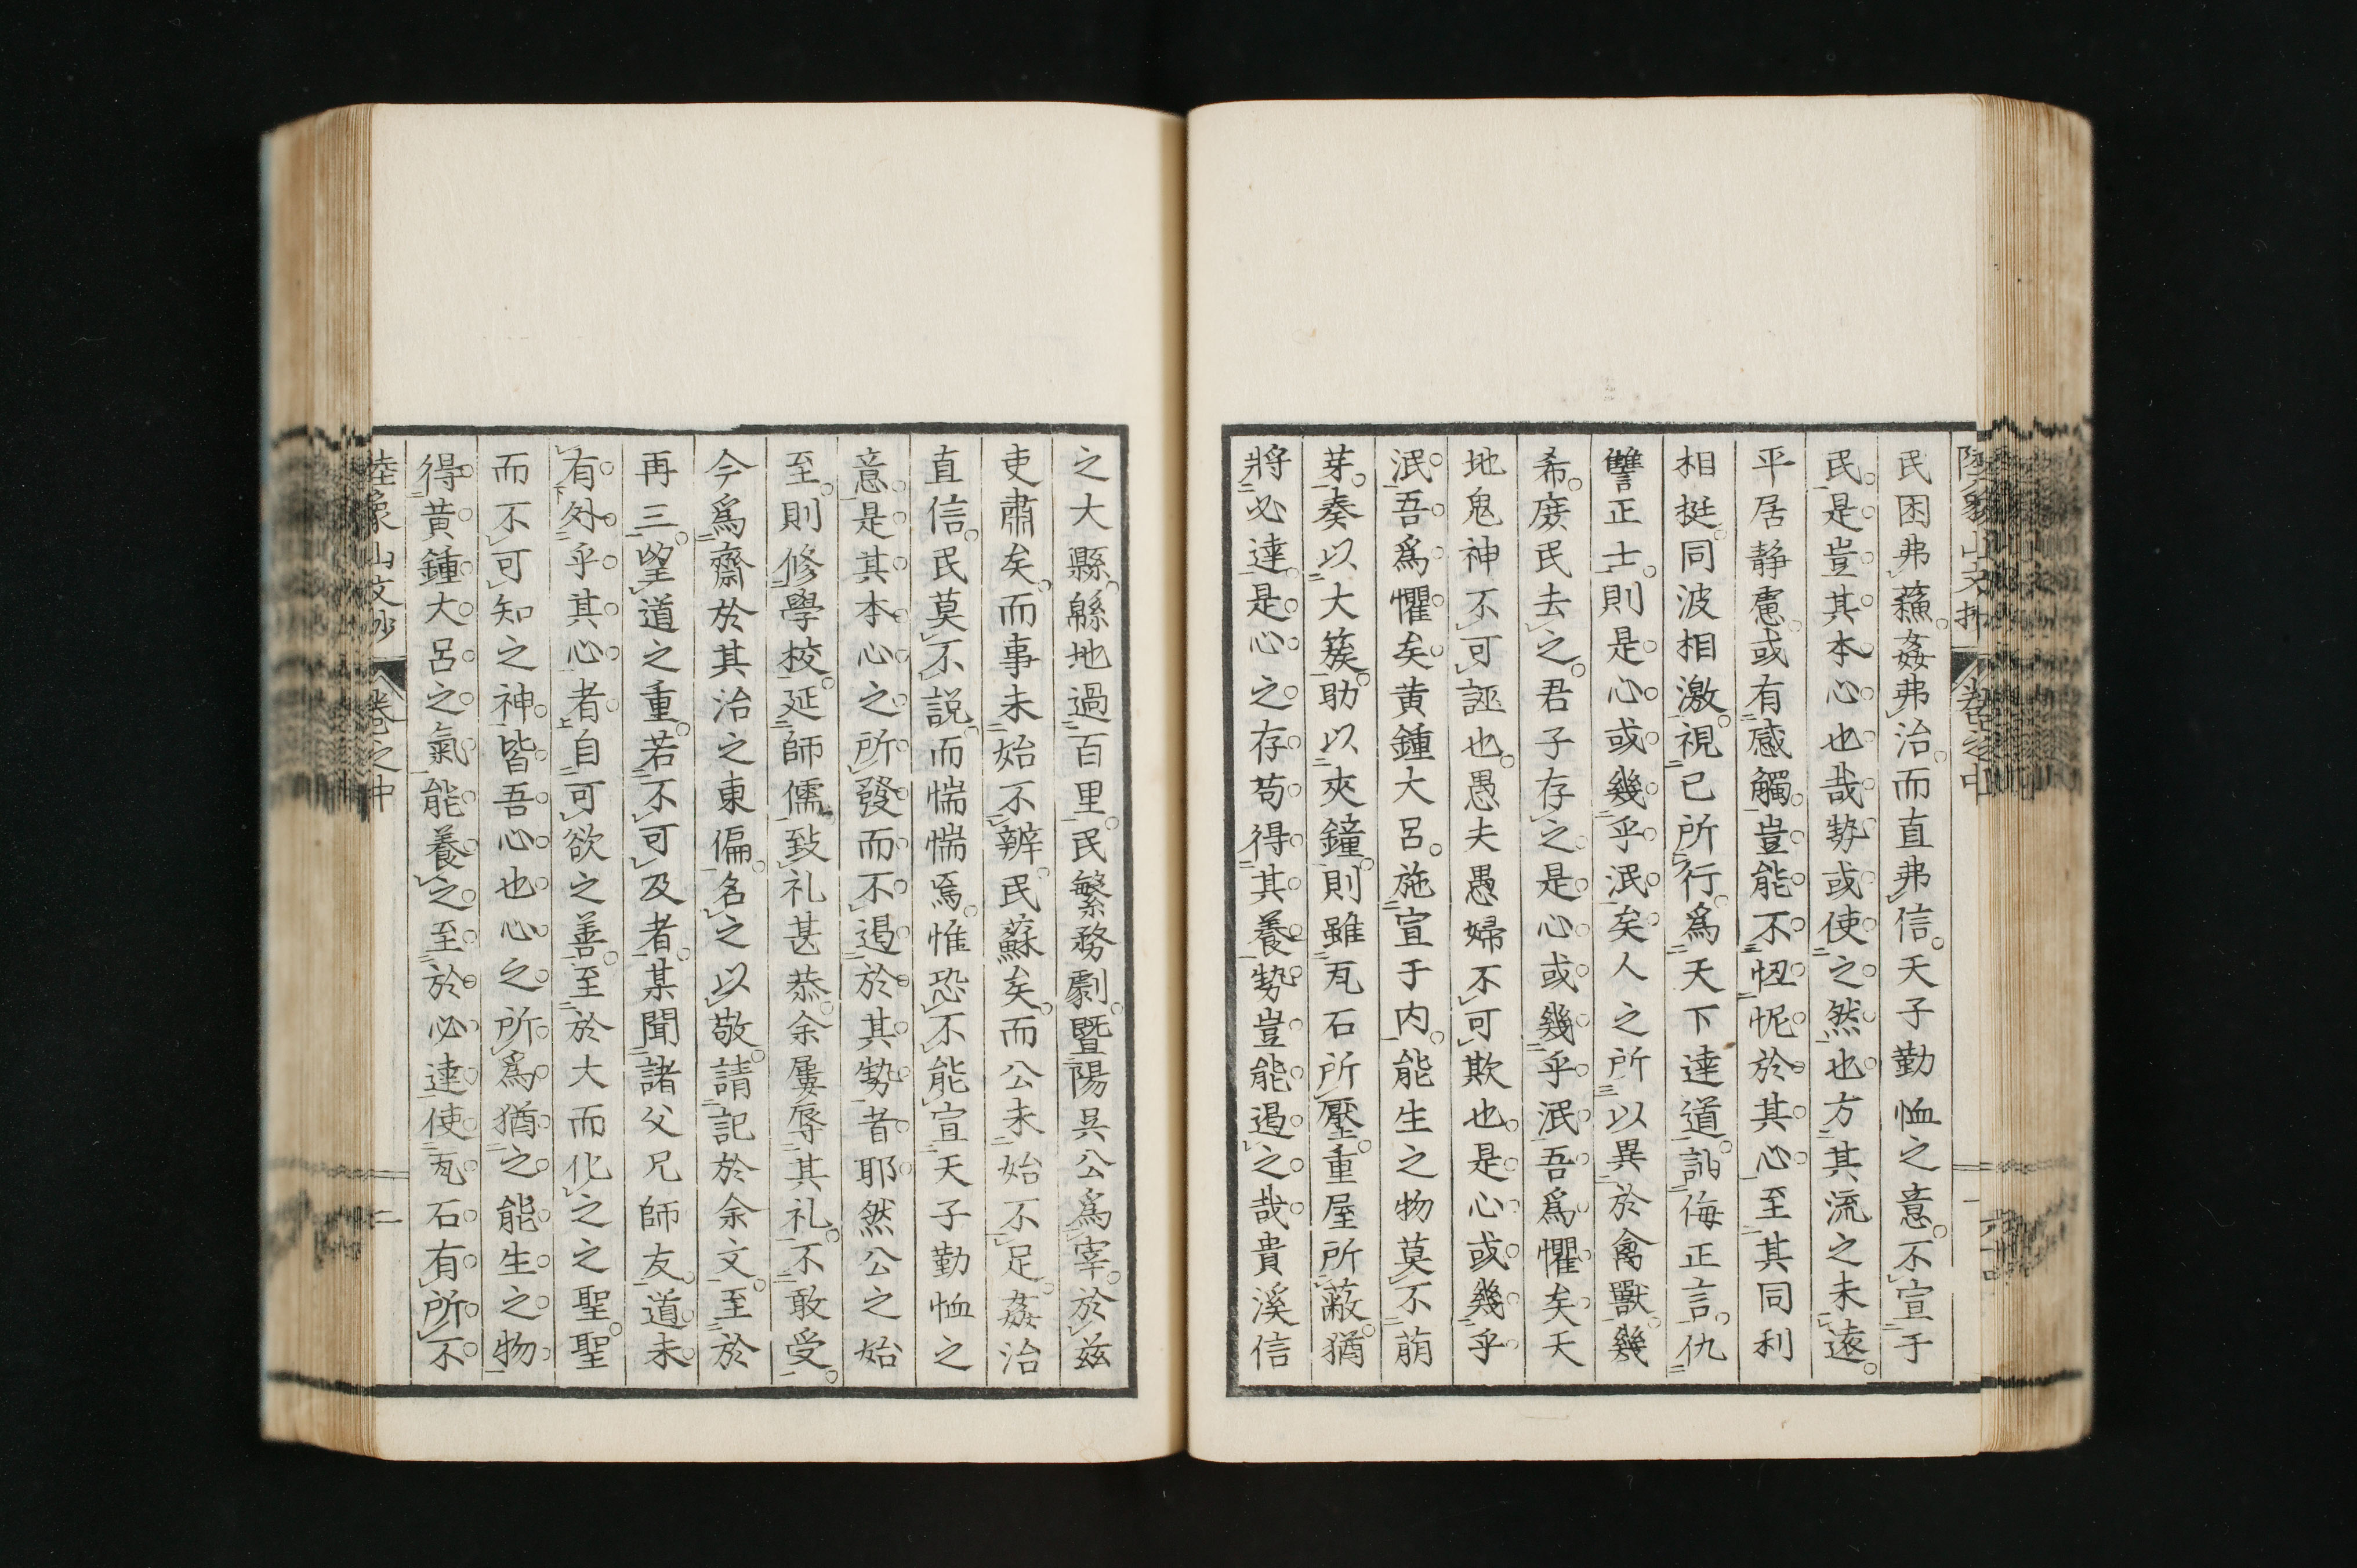 民困弗蘓。姦弗治。而直弗信。天子勤恤之意。不宣于
民。是豈其本心也哉勢或使之然也方其流之未遠。
平居静慮。或有感觸。豈能不忸怩於其心至其同利
相挺。同波相激。視已所行。爲天下達道。訕侮正言。仇
讐正士。則是心或幾乎泯矣人之所以異於禽獸。幾
希。庶民去之。君子存之是心或幾乎泯吾爲懼矣天
地鬼神不可誣也。愚夫愚婦不可欺也是心或幾乎
泯吾爲懼矣黄鍾大呂。施宣于内。能生之物莫不萠
芽。奏以大簇。助以夾鐘。則雖瓦石所壓。重屋所蔽。猶
將必達。是心之存苟得其養勢豈能遏之哉貴溪信
之大縣。緜地過百里。民繁務劇。曁陽吳公爲宰。於茲
吏肅矣。而事未始不辨。民蘇矣。而公未始不足。姦治
直信。民莫不説。而惴惴焉。惟恐不能宣天子勤恤之
意。是其本心之所發而不遏於其勢者耶然公之始
至。則修學校。延師儒。致礼甚恭。余屢辱其礼。不敢受。
今爲齋於其治之東偏。名之以敬。請記於余文。至於
再三。望道之重。若不可及者。某聞諸父兄師友。道未
有外乎其心者自可欲之善。至於大而化之之聖。聖
而不可知之神。皆吾心也心之所爲猶之能生之物
得黄鍾大呂之氣能養之至於必達使瓦石有所不
陸象山文抄
卷之中
二